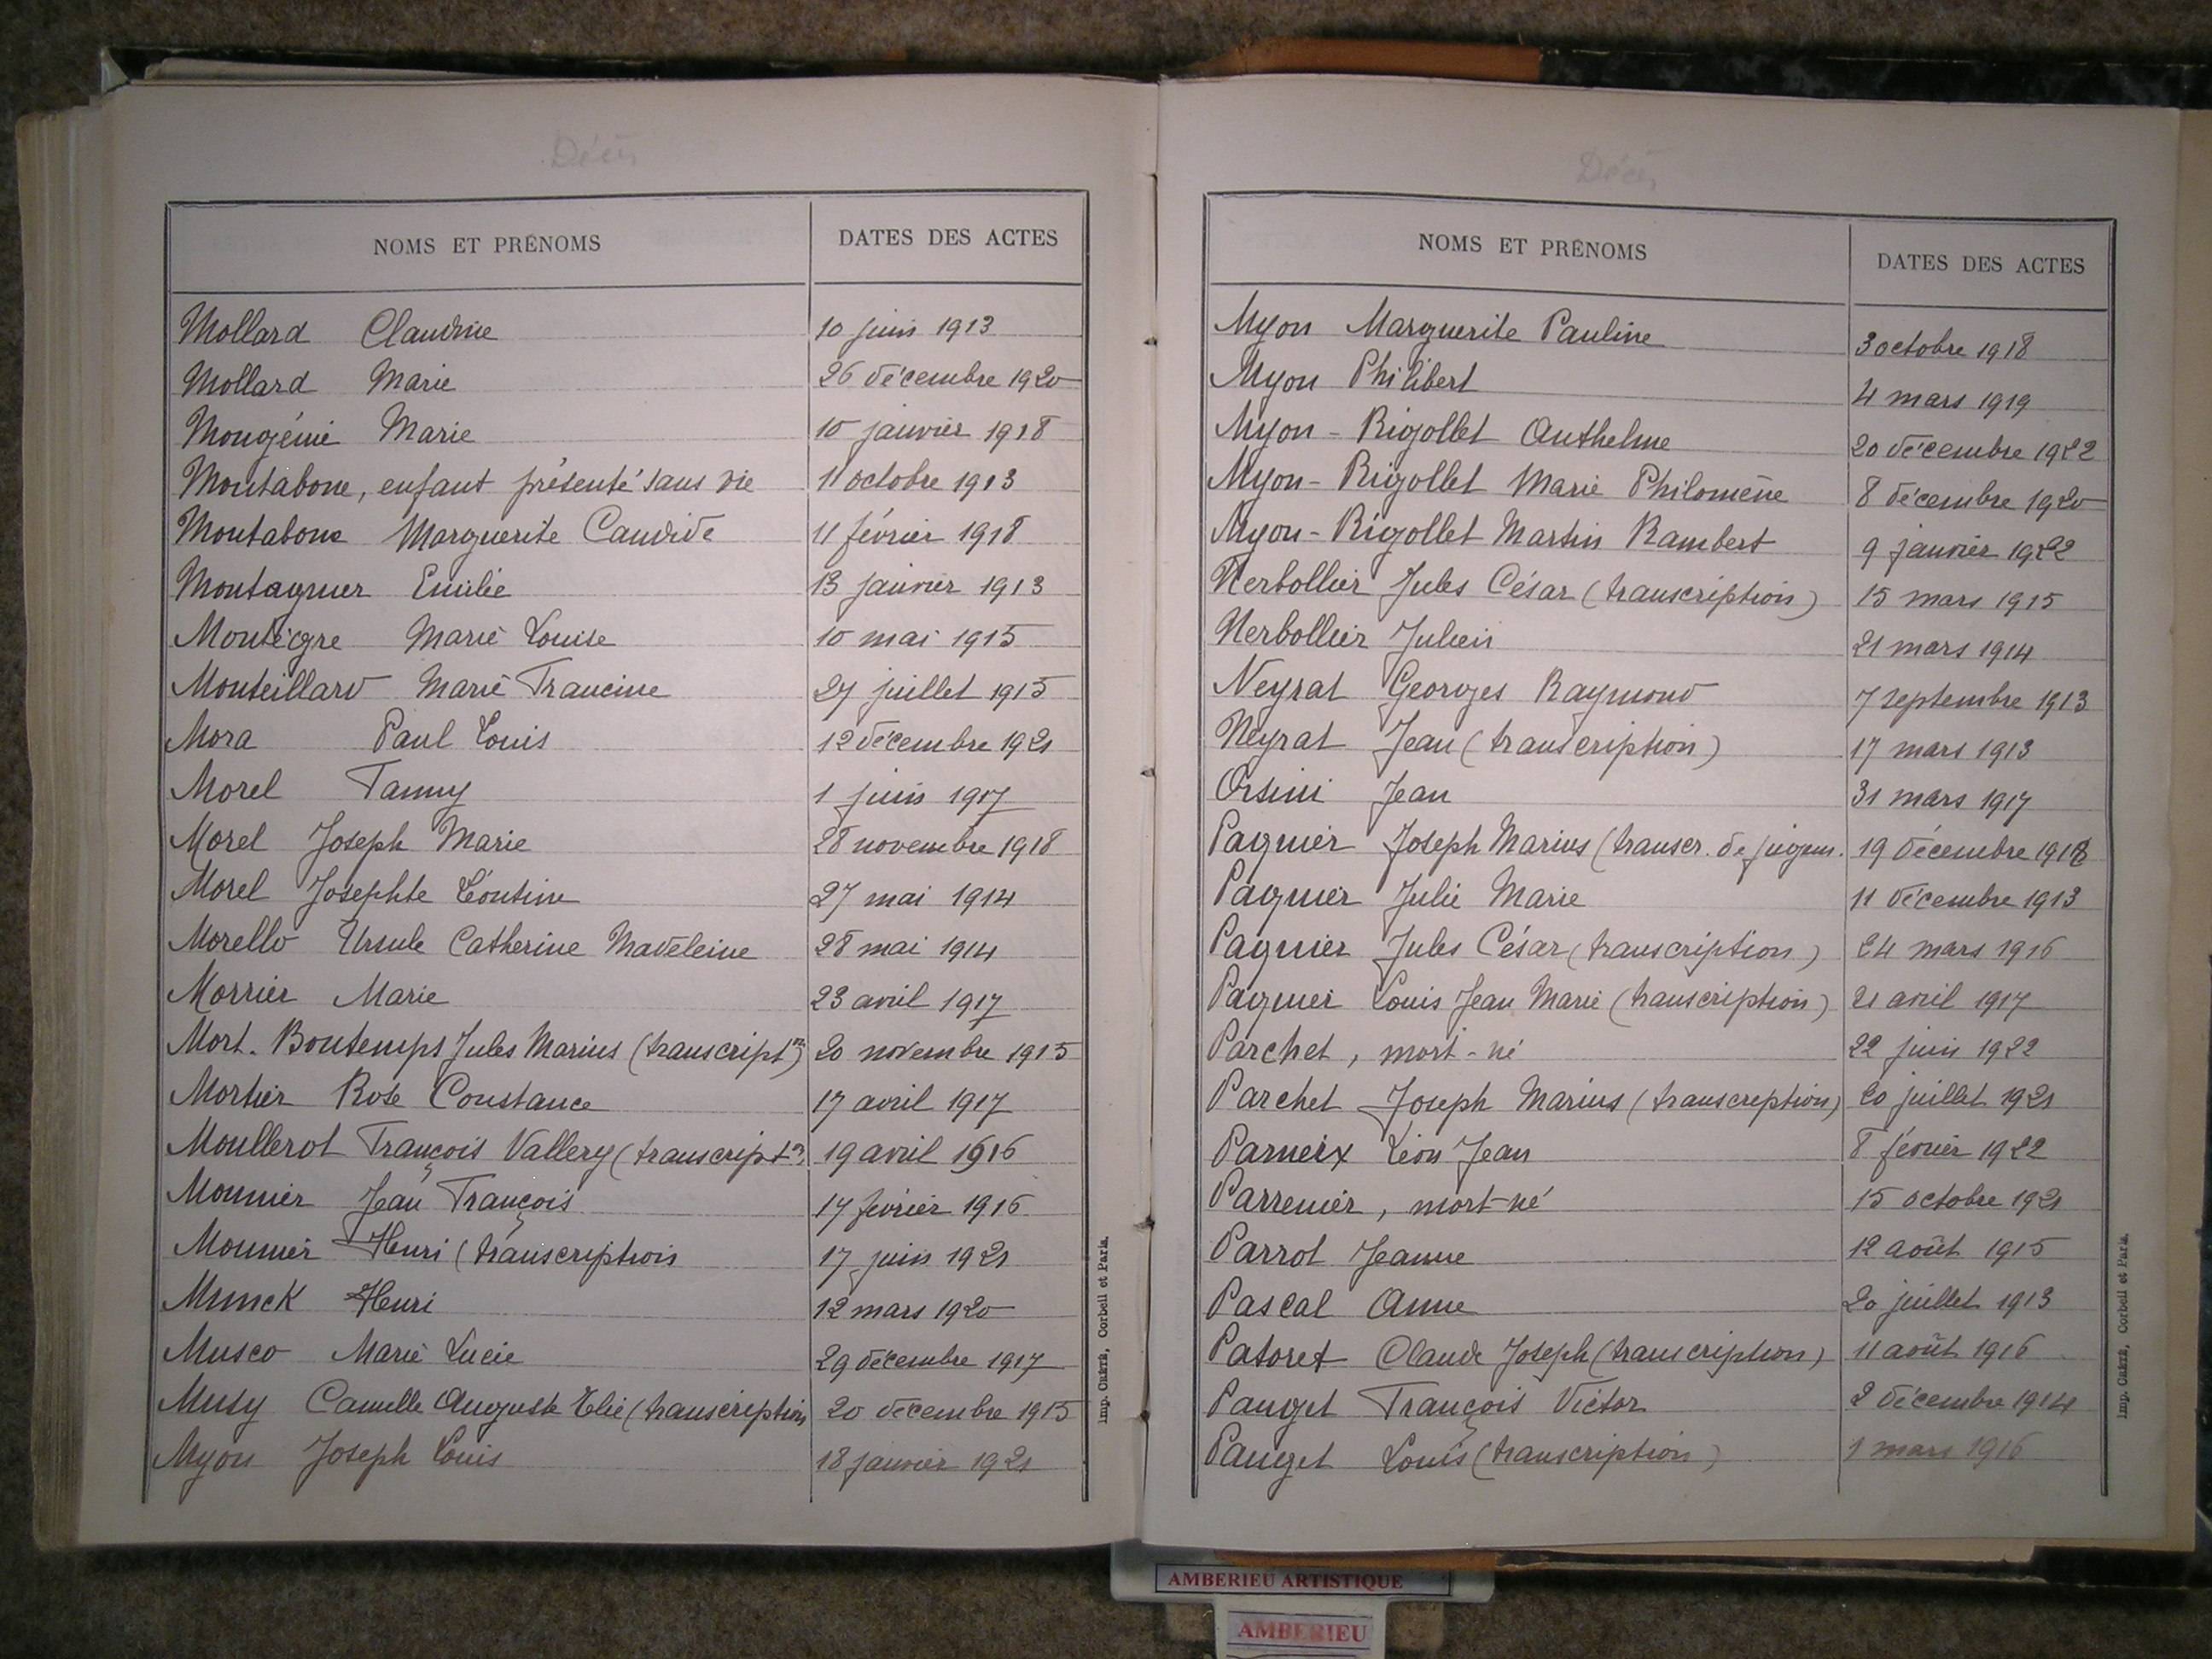 Décès
NOMS ET PRÉNOMS DATES DES ACTES
Mollard Claudine 10 juin 1913
Mollard Marie 26 décembre 1920
Mongénie Marie 10 janvier 1918
Montabone, enfant présenté sans vie 11 octobre 1913
Montabone Marguerite Candide 11 février 1918
Montagner Emilie 13 janvier 1913
Montègre Marie Louise 10 mai 1915
Monteillard Marie Francine 27 juillet 1915
Mora Paul Louis 12 décembre 1921
Morel Fanny 1 juin 1917
Morel Joseph Marie 28 novembre 1918
Morel Josephte Léontine 27 mai 1914
Morello Ursule Catherine Madeleine 28 mai 1914
Morrier Marie 23 avril 1917
Mort-Boutemps Jules Marius (transcript.on) 20 novembre 1915
Mortier Rose Constance 17 avril 1917
Moullerot François Vallery (transcript.on) 19 avril 1916
Mounier Jean François 17 février 1916
Mounier Henri (transcription 17 juin 1921
Munck Henri 12 mars 1920
Musco Marie Lucie 29 décembre 1917
Musy Camille Auguste Elie (transcription 20 décembre 1915
Myon Joseph Louis 18 janvier 1921
Imp. CRÉTÉ, Corbeil et Paris.
Décès
NOMS ET PRÉNOMS DATES DES ACTES
Myon Marguerite Pauline 3 octobre 1918
Myon Philibert 4 mars 1919
Myon-Rigollet Anthelme 20 décembre 1922
Myon-Rigollet Marie Philomène 8 décembre 1920
Myon-Rigollet Martin Rambert 9 janvier 1922
Nerbollier Jules César (transcription) 15 mars 1915
Nerbollier Julien 21 mars 1914
Neyrat Georges Raymond 7 septembre 1913
Neyrat Jean (transcription) 17 mars 1913
Orsini Jean 31 mars 1917
Pagnier Joseph Marius (transcr. de jugem. 19 décembre 1918
Pagnier Julie Marie 11 décembre 1913
Pagnier Jules César (transcription) 24 mars 1916
Pagnier Louis Jean Marie (transcription) 21 avril 1917
Parchet, mort-né 22 juin 1922
Parchet Joseph Marius (transcription) 20 juillet 1921
Parneix Léon Jean 8 février 1922
Parrenier, mort-né 15 octobre 1921
Parrot Jeanne 12 août 1915
Pascal Anne 20 juillet 1913
Patoret Claude Joseph (transcription) 11 août 1916
Pauget François Victor 2 décembre 1914
Pauget Louis (transcription) 1 mars 1916
Imp. CRÉTÉ, Corbeil et Paris.
AMBERIEU ARTISTIQUE
AMBERIEU